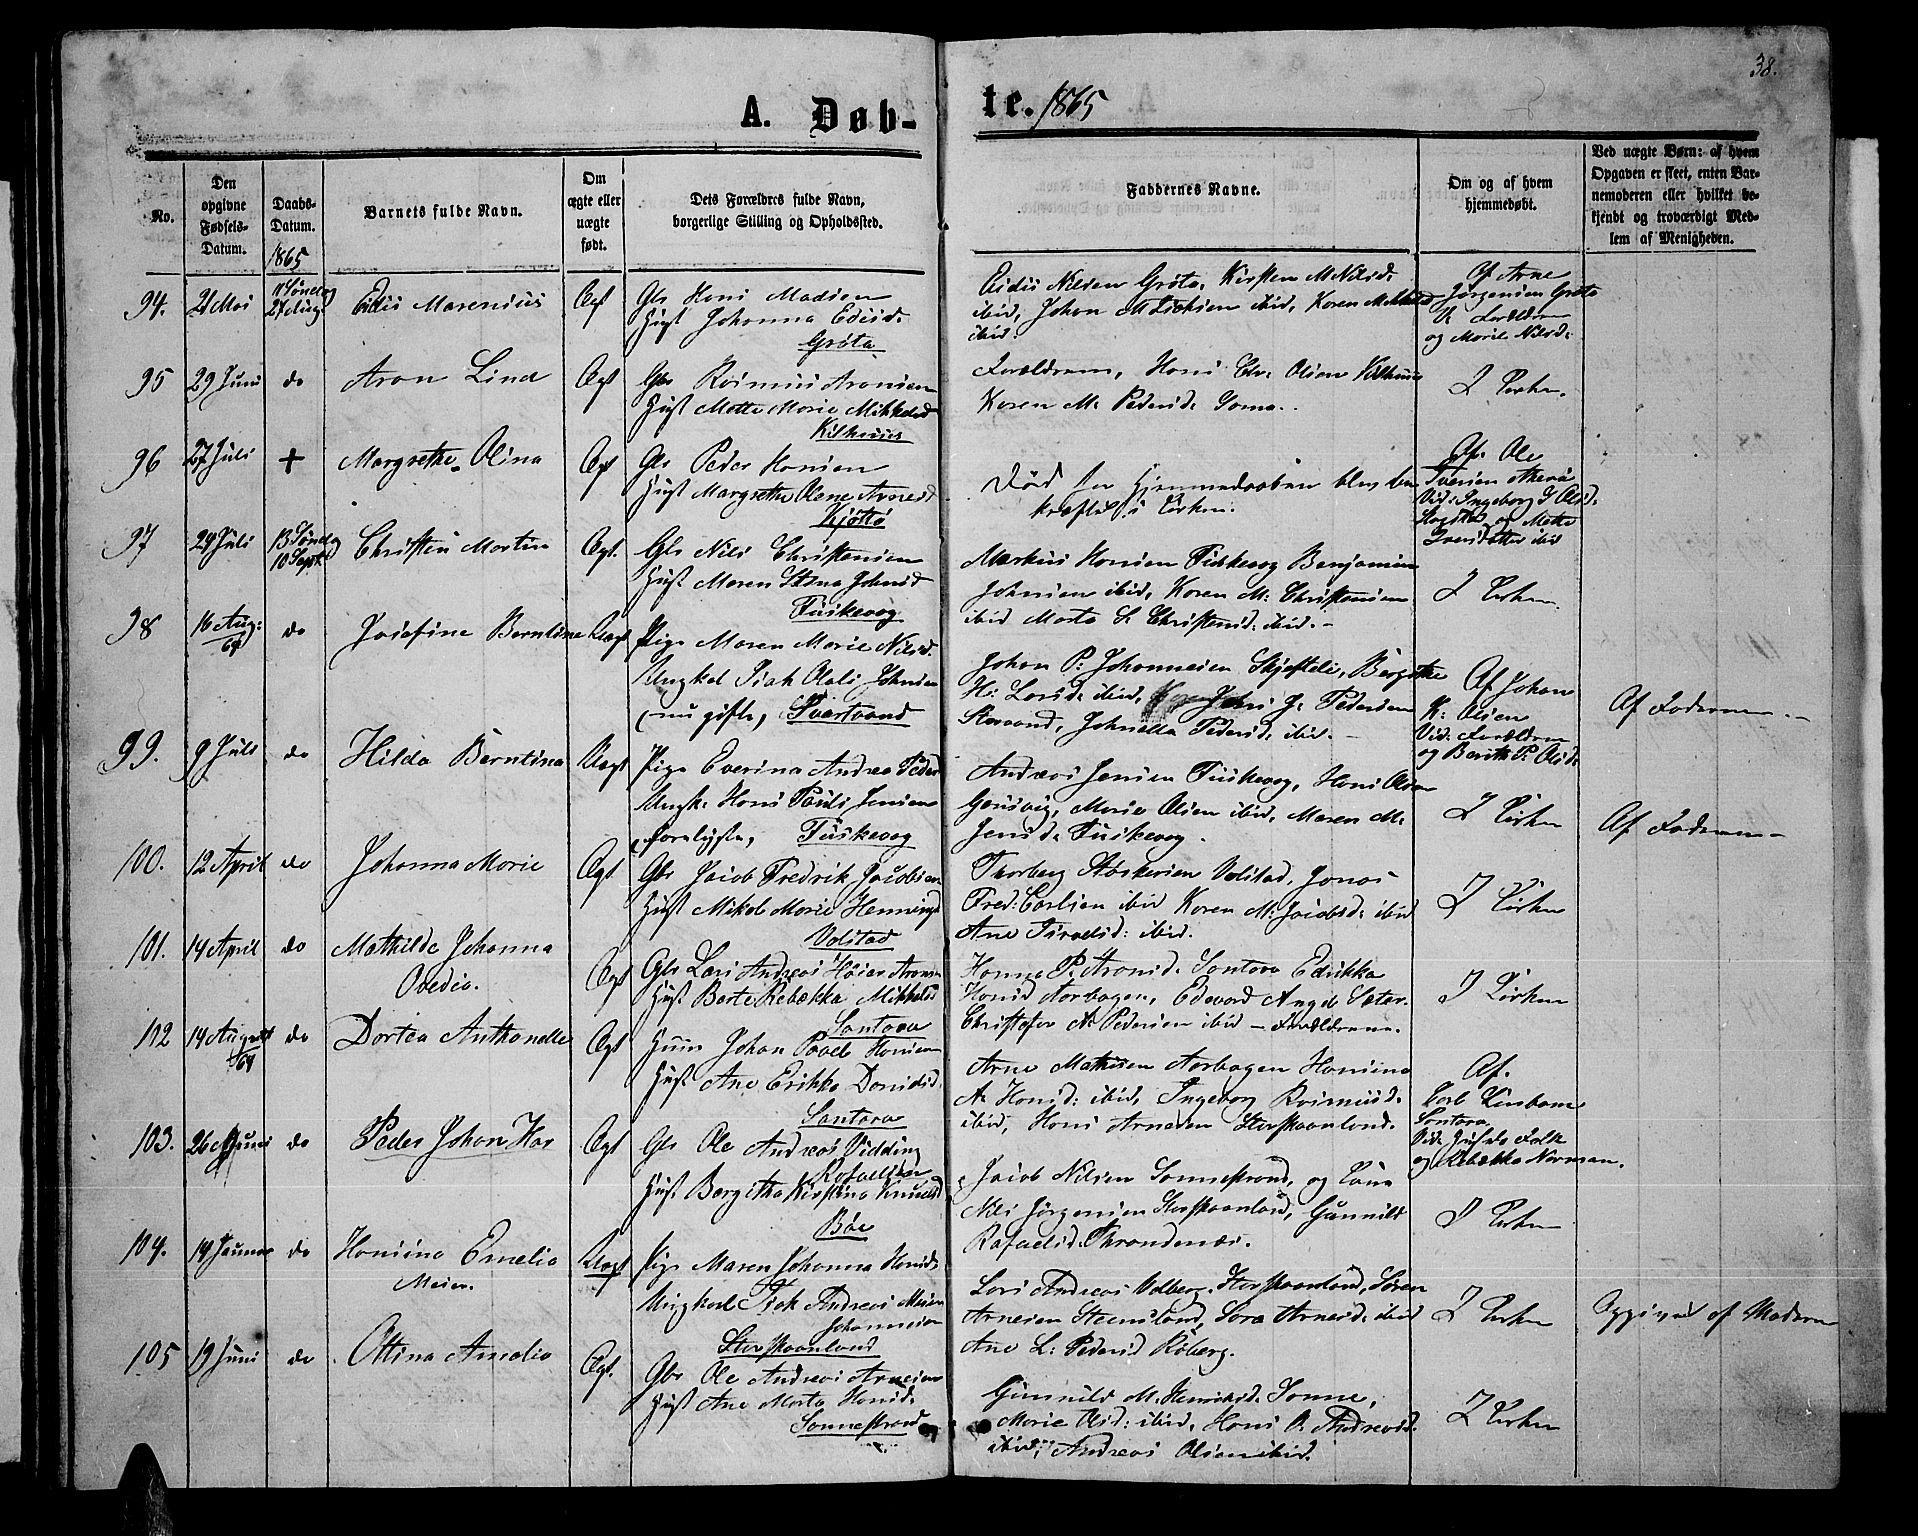 38.
A. Døb-
te. 1865
No.
Den
opgivne
Fødsels-
Datum.
Daabs-
Datum.
1865
Barnets fulde Navn.
Om
ægte eller
uægte
født.
Dets Forældres fulde Navn,
borgerlige Stilling og Opholdssted.
Faddernes Navne.
Om og af hvem
hjemmedøbt.
Ved uægte Børn: af hvem
Opgaven er skeet, enten Bar-
nemoderen eller hvilket be-
kjendt og troværdigt Med-
lem af Menigheden.
94.
21 Mai
11 Søndag
27 Aug:
Edis Marenius
Ægt
Gbr Hans Madsen
Hust Johanna Edisd.
Grøta
Edis Nilsen Grøta, Kirsten M Nilsd.
ibid, Johan ibid, Karen
ibid.
Af Arne
Jørgensen Grøta
V: Forældrene
og Marie Nilsd:
95
29 Juni
do
Aron Lind
Ægt
Gbr Rasmus Aronsen
Hust Mette Marie Mikkelsd
Kilhuus
Forældrene, Hans Chr: Olsen Kilhuus
Karen M: Pedersd: Sama.
I Kirken.
96
27 Juli
+
Margrethe Olina
Ægt
Gbr Peder Hansen
Hust Margrethe Olane Arnesd
Kjøtta
Død før Hjemmedaaben blev be
kræftet i Kirken.
Af: Ole
Iversen
Vid: Ingeborg Olsd.
og Mette
Iversdatter ibid
97
24 Juli
13 Søndag
10 Septb
Christen Martin
Ægt.
Gbr Nils Christensen
Hust Maren Stina Johnsd
Fuskevaag
Markus Hansen Fuskevaag Benjamin
Johnsen ibid, Karen M: Christensen
ibid Marta S. Christensd: ibid.
I Kirken.
98
16 Aug:
64
do
Josefine Berntine
Uægt
Pige Maren Marie Nilsd.
Ungkal Isak Johnsen
(nu gifte, Svartvand
Johan P: Johannesen , Bergithe
H: Larsd: ibid, Jens J: Pedersen
Storvand, Johnetta Pedersd: ibid.
Af Johan
K: Olsen
Vid: Forældrene
og Berith P. Olsd:
Af Faderen.
99.
9 Juli
do
Hilda Berntina
Uægt
Pige Everina Andrea Peders
Ungk: Hans Pauli Jensen
Forlovede, Fuskevaag
Andreas Jensen Fuskevaag, Hans Olsen
Gausvig, Marie Olsen ibid, Maren M.
Jensd: Fuskevaag.
I Kirken
Af Faderen
100.
12 April
do
Johanna Marie
Ægt
Gbr Jacob Fredrik Jacobsen
Hust Mikal Marie Hennings
Volstad
Thorberg Volstad, Jonas
Fred: Carlsen ibid Karen M: Jacobsd: ibid
Ane Israelsd: ibid.
I Kirken
101.
14 April
do
Mathilde Johanna
Ovedia.
Ægt
Gbr Lars Andreas Høier Aronsen
Hust Berte Rebækka Mikkelsd
Santora
Hanna P. Aronsd. Santora Edrikka
Hansd Aarbogen, Edevard Angel Sæter.
Christofer N. Pedersen ibid – Forældrene.
I Kirken
102
14 August
64
do
Dortea Anthonette
Ægt
Huus Johan Povel Hansen
Hust Ane Erikka Danielsd.
Santora
Arne Mathisen Aarbogen Hansina
A: Hansd: ibid, Ingeborg Rasmusd.
ibid, Hans Arnesen Storskaanland.
Af.
Santora,
og Rebækka Norman.
103.
26 Juni
do
Peder Johan Kar
Ægt
Gbr Ole Andreas Vidding
Rafaelsen
Hust Bergitha Kirstina Knudsd
Bøe
Jacob Nilsen Sannestrand, og Kone
Nils Jørgensen Storskaanland, Gunnild
Rafaelsd. Throndenæs.
I Kirken
104.
19 Januar
do
Hansina Emelia
Meier.
Uægt
Pige Maren Johanna Hansd:
Ungkarl Isak Andreas Meier
Johannesen
Storskaanland
Lars Andreas Volberg. Storskaanland, Søren
Arnesen Steensland, Sara Arnesd: ibid
Ane L: Pedersd Røberg.
I Kirken
Opgivet af Moderen
105
19 Juni
do
Ottina Amalia
Ægt.
Gbr Ole Andreas Arnesen
Hust Ane Marta Hansd.
Sannestrand
Gunnild M. Henriksd. Sanne,
Marie Olsd: ibid, Hans A. Andreasd.
ibid, Andreas Olsen ibid.
I Kirken